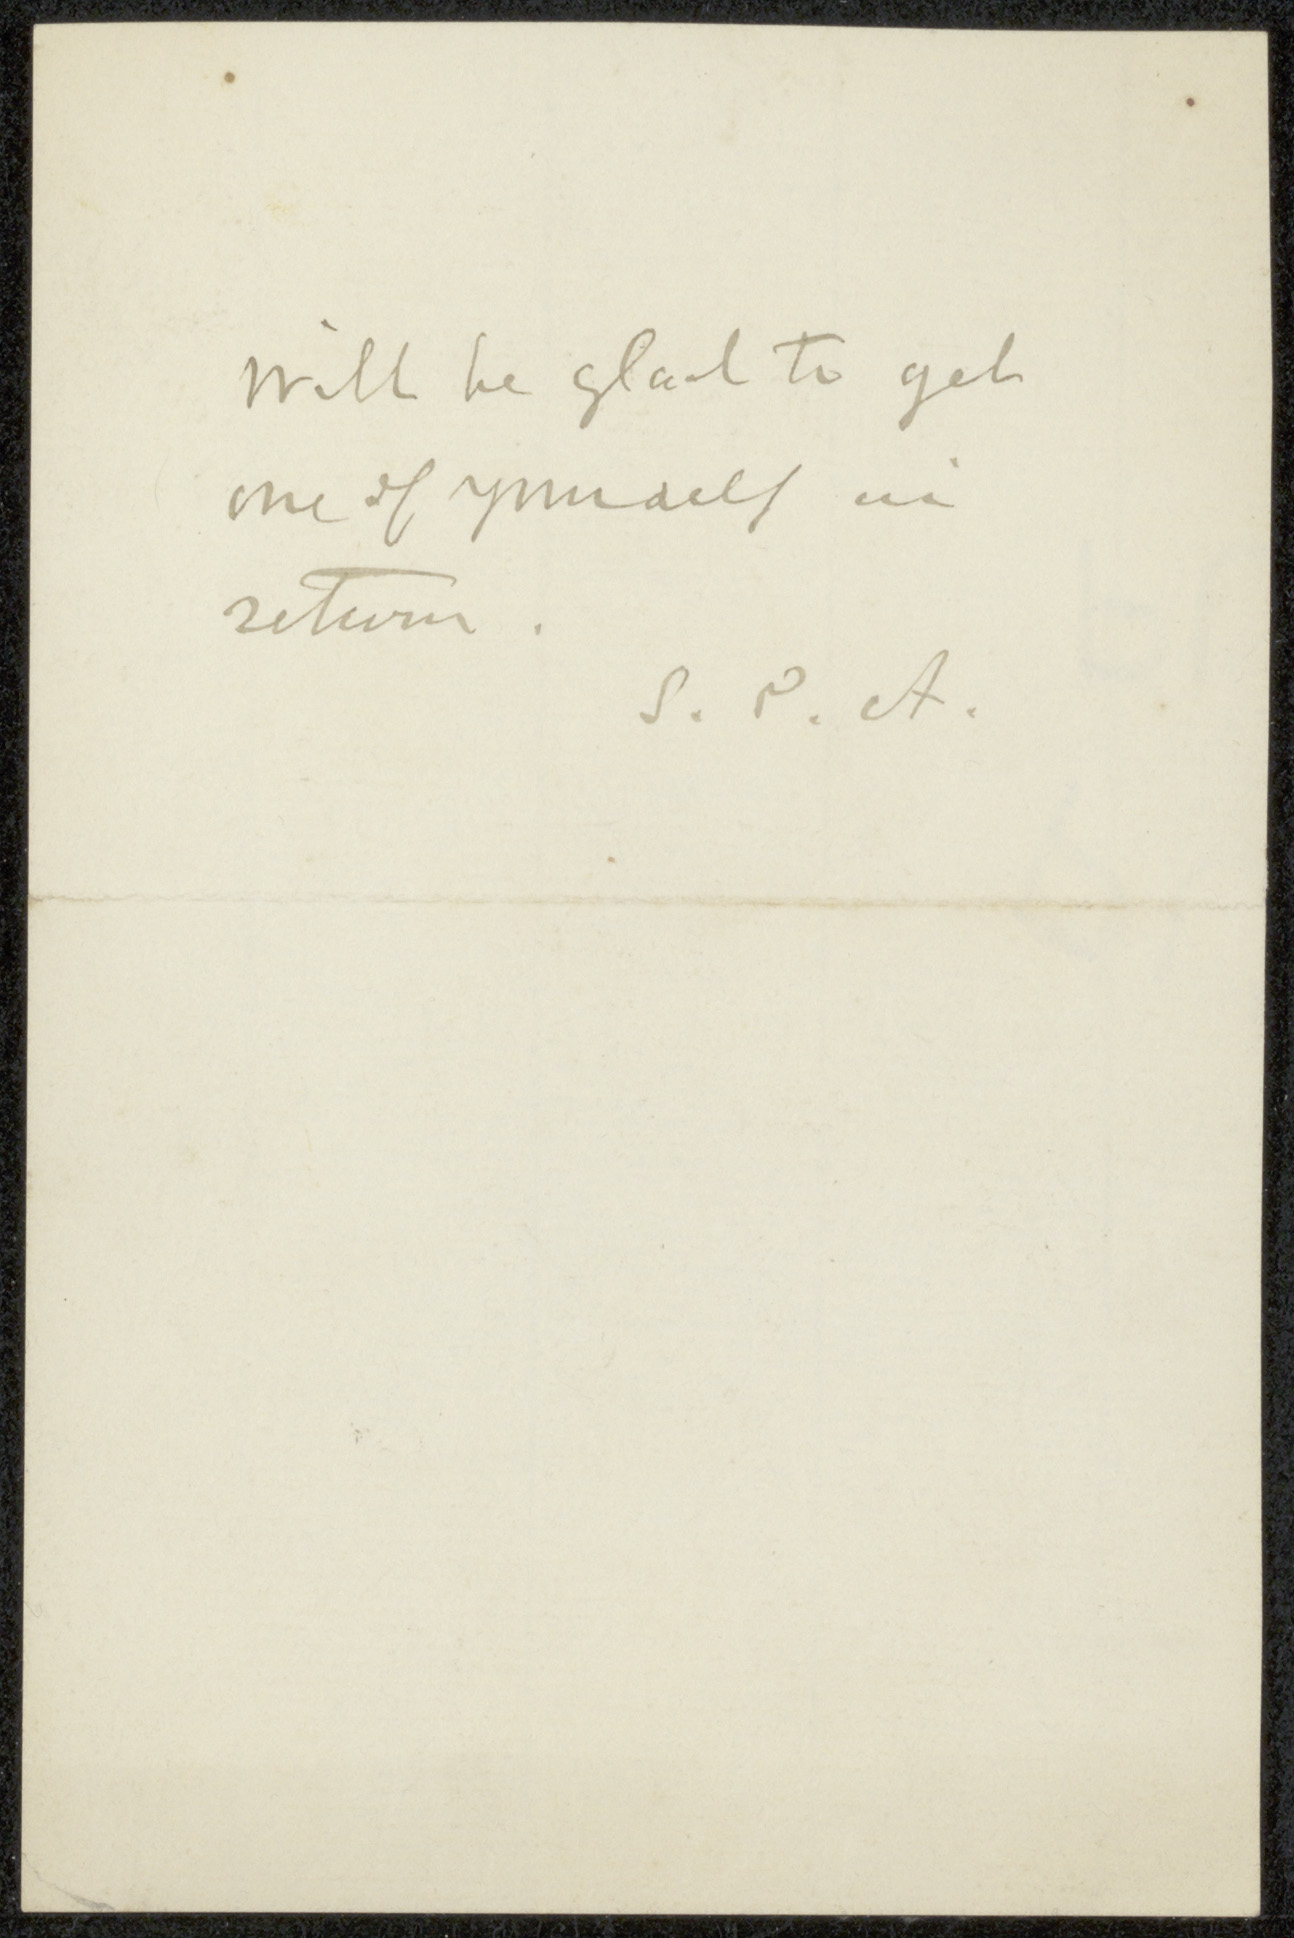 Will be glad to get
one of yourself in
return.
S. P. A.